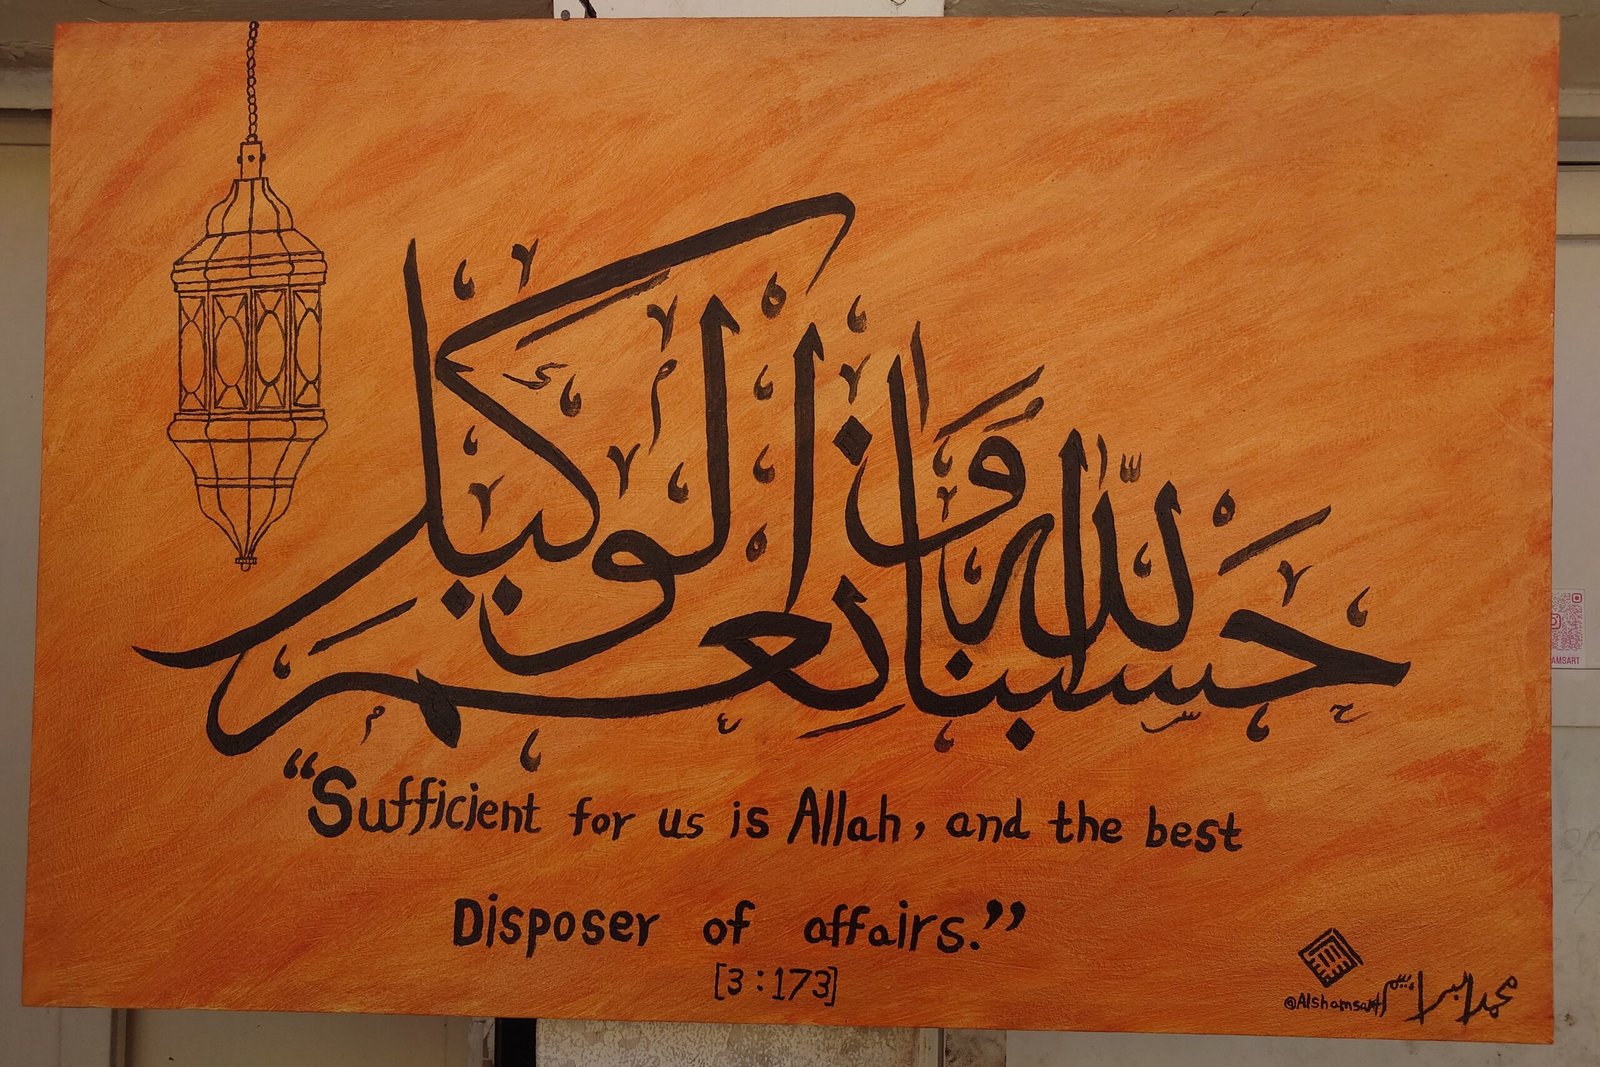 حسبنا الله ونعم الوكيل
“Sufficient for us is Allah, and the best
Disposer of affairs.”
[3:173]
@Alshamsart
AMSART